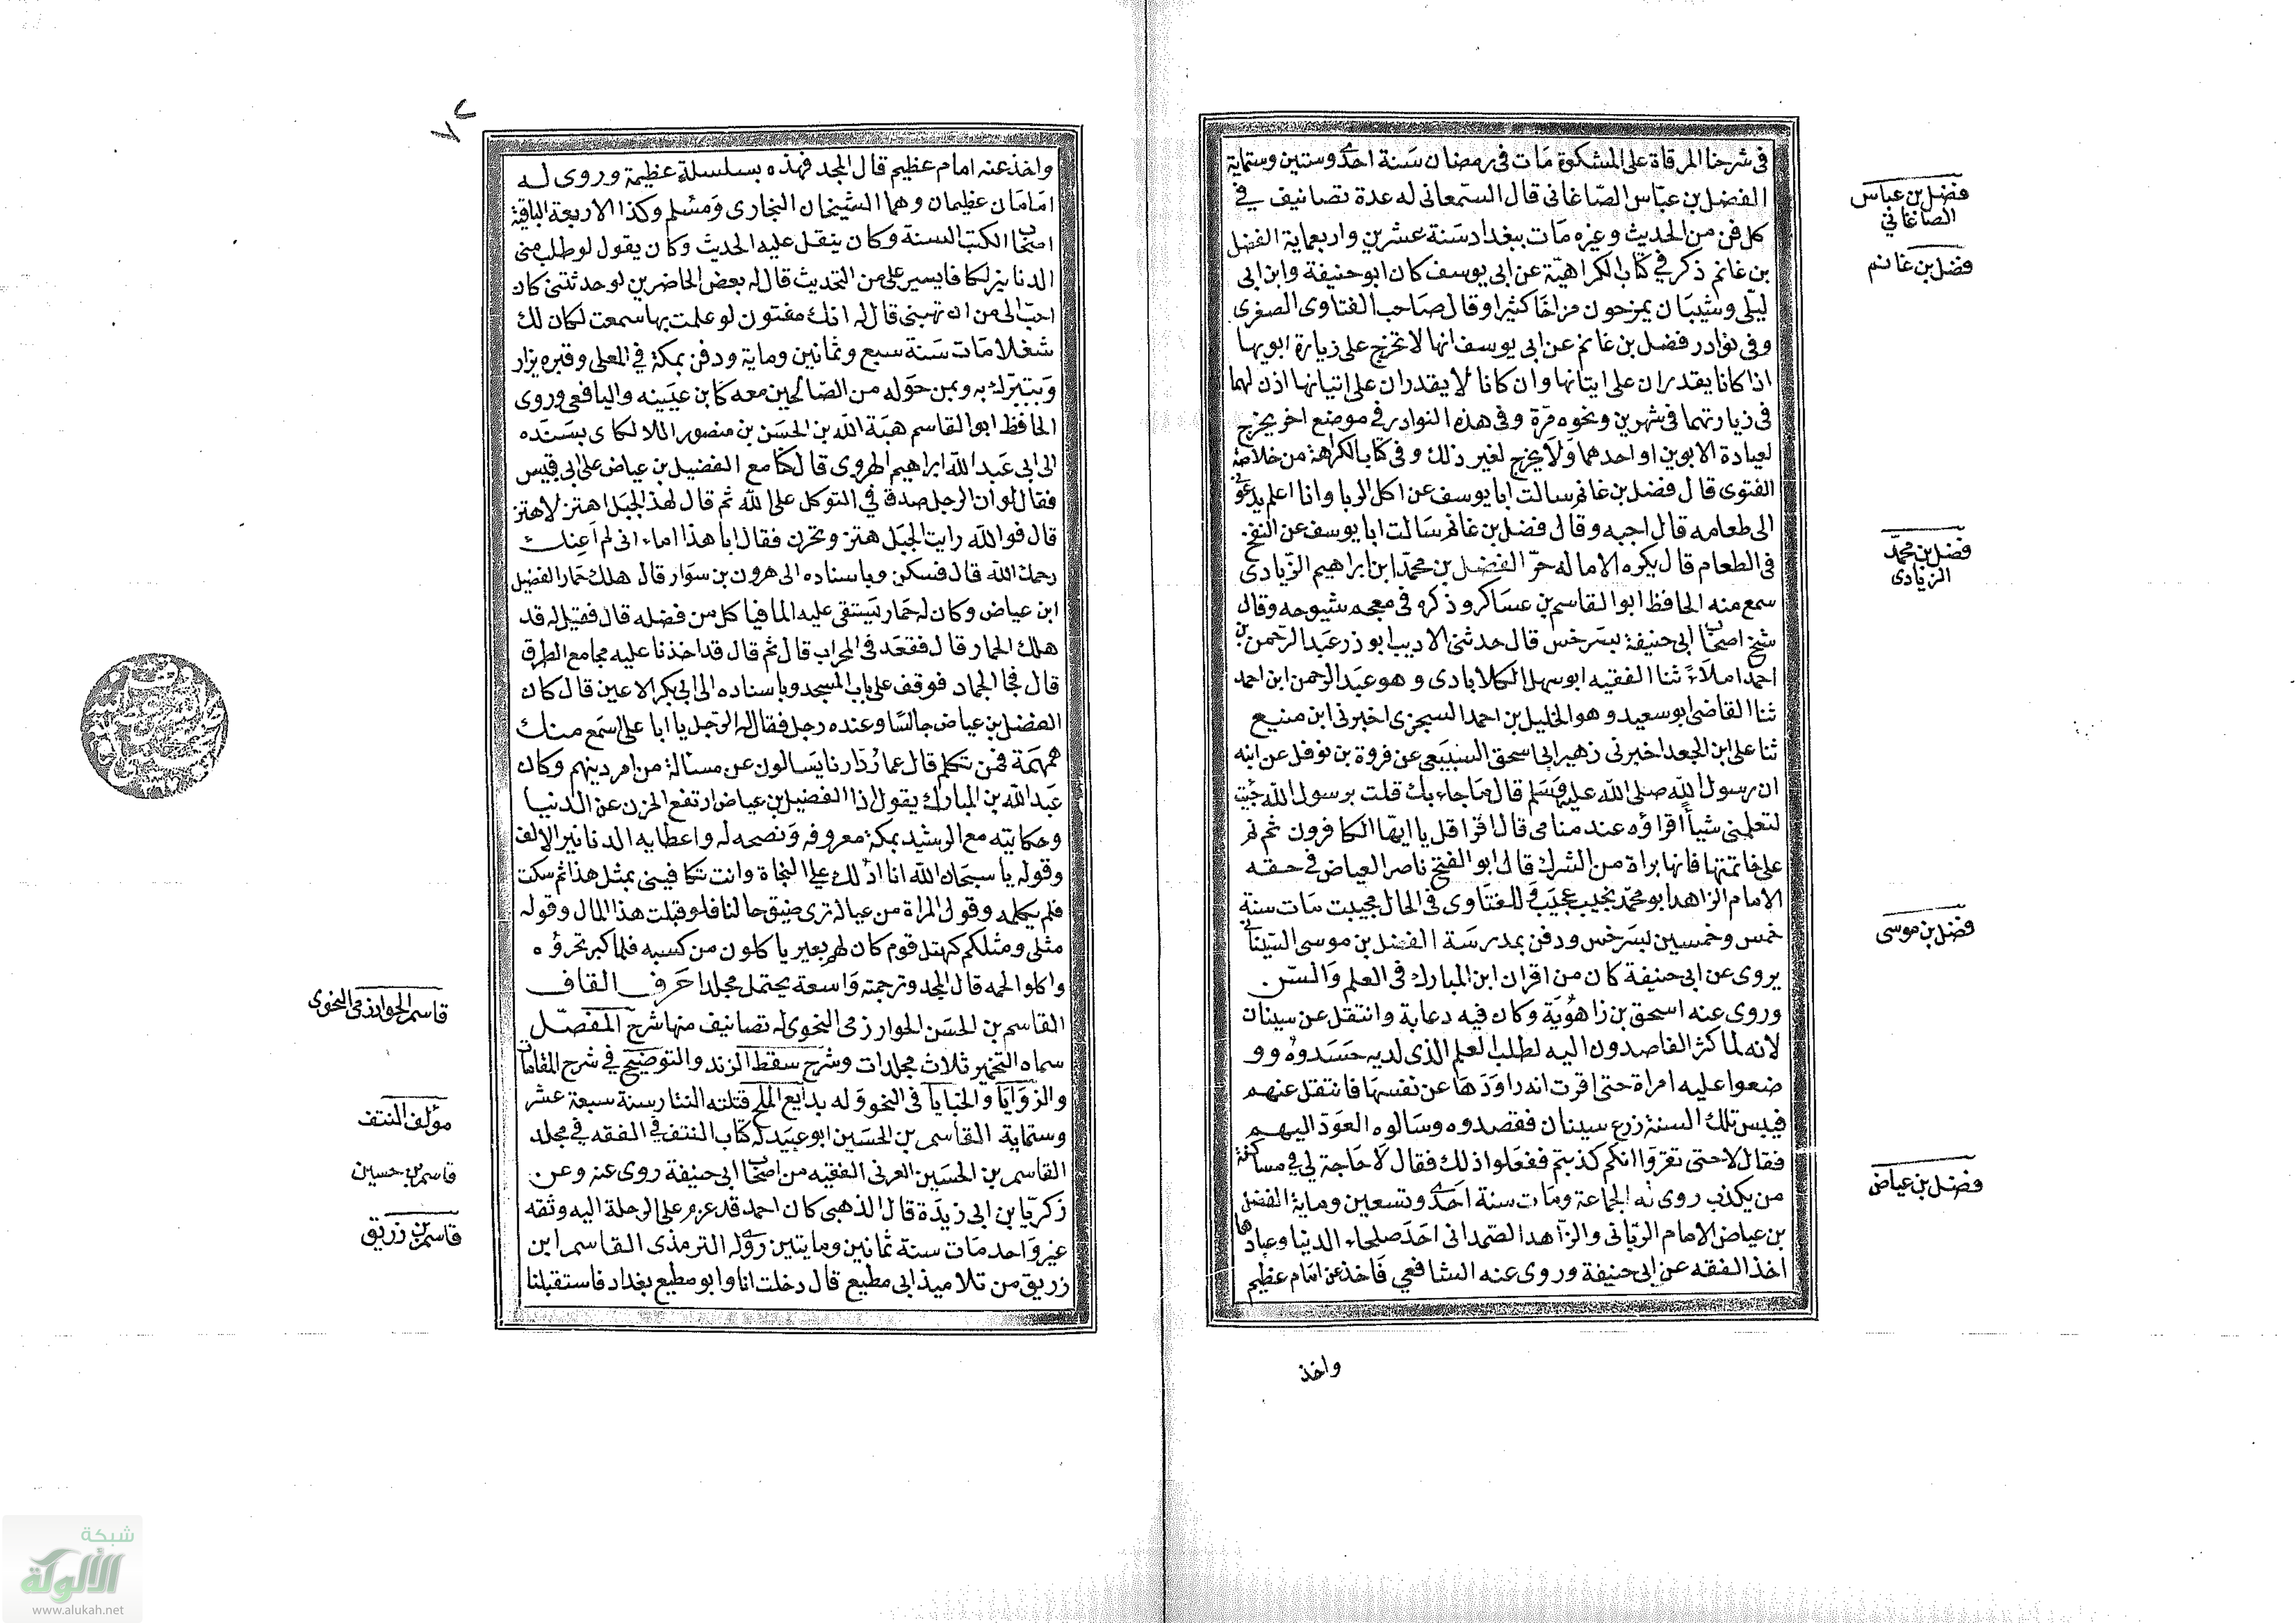 في شرحنا المرقاة على المشكوة مات في رمضان سنة احدى وستين وستماية
الفضل بن عباس الصاغاني قال السمعاني له عدة تصانيف في
كل فن من الحديث وغيره مات ببغداد سنة عشرين واربعماية الفضل
بن غانم ذكر في كتاب الكراهية عن ابي يوسف كان ابو حنيفة وابن ابي
ليلى وشيبان يمزحون مزاحا كثيرا وقال صاحب الفتاوى الصغرى
وفي نوادر فضل بن غانم عن ابي يوسف انها لا تخرج على زيارة ابويها
اذا كانا يقدران على ايتانها وان كانا لا يقدران على اتيانها اذن لهما
في زيارتهما في شهرين ونحوه مرة وفي هذه النوادر في موضع اخر يخرج
لعيادة الابوين او احدهما ولا يخرج لغير ذلك وفي كتاب الكراهة من خلاصة
الفتوى قال فضل بن غانم سالت ابا يوسف عن اكل الربا وانا اعلم يدعوني
الى طعامه قال اجبه وقال فضل بن غانم سالت ابا يوسف عن النفخ
في الطعام قال يكره الا ما له حر الفضل بن محمد ابن ابراهيم الزيادى
سمع منه الحافظ ابو القاسم بن عساكر وذكره في معجم شيوخه وقال
شيخ اصحاب ابي حنيفة بسرخس قال حدثنى الاديب ابو ذر عبد الرحمن بن
احمد املاء ثنا الفقيه ابو سهل الكلابادى وهو عبد الرحمن ابن احمد
ثنا القاضى ابو سعيد وهو الخليل بن احمد السجزى اخبرنى ابن منيع
ثنا على ابن الجعد اخبرنى زهير ابى اسحق السبيعى عن فروة بن نوفل عن ابيه
ان رسول الله صلى الله عليه وسلم قال ما جاء بك قلت يرسول الله جئت
لتعلمنى شيأ اقراؤه عند منامى قال اقرا قل يا ايها الكافرون ثم نم
على خاتمتها فانها براة من الشرك قال ابو الفتح ناصر العياض في حقه
الامام الزاهد ابو محمد نجيب عجيب للفتاوى في الحال مجيب مات سنة
خمس وخمسين بسرخس ودفن بمدرسة الفضل بن موسى السينانى
يروى عن ابى حنيفة كان من اقران ابن المبارك في العلم والسن
وروى عنه اسحق بن راهوية وكان فيه دعابة وانتقل عن سينان
لانه لما كثر القاصدون اليه لطلب العلم الذى لديه حسدوه وو
ضعوا عليه امراة حتى اقرت انه راودها عن نفسها فانتقل عنهم
فيبس تلك السنة زرع سينان فقصدوه وسالوه العود اليهم
فقال لا حتى تقروا انكم كذبتم ففعلوا ذلك فقال لا حاجة لي في مساكنة
من يكذب روى له الجماعة ومات سنة احدى وتسعين وماية الفضل
بن عياض الامام الربانى والزاهد الصمدانى احد صلحاء الدنيا وعبادها
اخذ الفقه عن ابى حنيفة وروى عنه الشافعي فاخذ عن امام عظيم
واخذ
فضل بن عباس
الصاغاني
فضل بن غانم
فضل بن محمد
الزيادى
فضل بن موسى
فضل بن عياض
٧٢
واخذ عنه امام عظيم قال المجد فهذه سلسلة عظيمة وروى له
امامان عظيمان وهما الشيخان البخارى ومسلم وكذا الاربعة الباقية
اصحاب الكتب الستة وكان يثقل عليه الحديث وكان يقول لو طلب منى
الدنانير لكا فايسير على من التحديث قال له بعض الحاضرين لو حدثتنى كان
احب الى من ان تهبنى قال له انك مفتون لو علمت بها سمعت لكان لك
شغلا مات سنة سبع وثمانين وماية ودفن بمكة في المعلى وقبره يزار
ويتبرك به وبمن حوله من الصالحين معه كابن عيينه واليافعى وروى
الحافظ ابو القاسم هبة الله بن الحسن بن منصور اللالكاى بسنده
الى ابى عبد الله ابراهيم الهروى قال كنا مع الفضيل بن عياض على ابى قبيس
فقال لو ان الرجل صدق في التوكل على الله ثم قال لهذ الجبل اهتز لاهتز
قال فوالله رايت الجبل هتز وتحرك فقال ابا هذا اماء انى لم اعنك
رحمك الله قال فسكن وباسناده الى هرون بن سوار قال هلك حمار الفضيل
ابن عياض وكان له حمار يستقى عليه الما فياكل من فضله قال فقيل له قد
هلك الحمار قال فقعد في المحراب قال ثم قال قد اخذنا عليه مجامع الطرق
قال فجا الحمار فوقف على باب المسجد وباسناده الى ابى بكر الاعين قال كان
الفضل بن عياض جالسا وعنده رجل فقال له الرجل يا ابا على اسمع منك
همهمة فمن تكلم قال عمار دارنا يسالون عن مسئالة من امر دينهم وكان
عبد الله بن المبارك يقول اذا الفضيل بن عياض ارتفع الحزن عن الدنيا
وحكايته مع الرشيد بمكة معروفه ونصحه له واعطايه الدنانير الالف
وقوله يا سبحان الله انا ادلك على النجاة وانت تكافينى بمثل هذا ثم سكت
فلم يكلمه وقول المراة من عياله ترى ضيق حالنا فلو قبلت هذا المال وقوله
مثلى ومثلكم كمثل قوم كان لهم بعير ياكلون من كسبه فلما كبر نحروه
واكلوا لحمه قال المجد وترجمته واسعة يحتمل مجلدا حرف القاف
القاسم بن الحسن الخوارزمى النحوى له تصانيف منها شرح المفصل
سماه التخمير ثلاث مجلدات وشرح سقط الزند والتوضيح في شرح المقامات
والزوايا والخبايا في النحو وله بدايع الملح قتلته التتار سنة سبعة عشر
وستماية القاسم بن الحسين ابو عبيد له كتاب النتف في الفقه في مجلد
القاسم بن الحسين العرنى الفقيه من اصحاب ابى حنيفة روى عنه وعن
زكريا بن ابى زيدة قال الذهبى كان احمد قد عزم على الرحلة اليه وثقه
غير واحد مات سنة ثمانين ومايتين روى له الترمذى القاسم ابن
زريق من تلاميذ ابى مطيع قال دخلت انا وابو مطيع بغداد فاستقبلنا
قاسم الخوارزمى النحوى
مؤلف النتف
قاسم بن حسين
قاسم بن زريق
شبكة
الألوكة
www.alukah.net